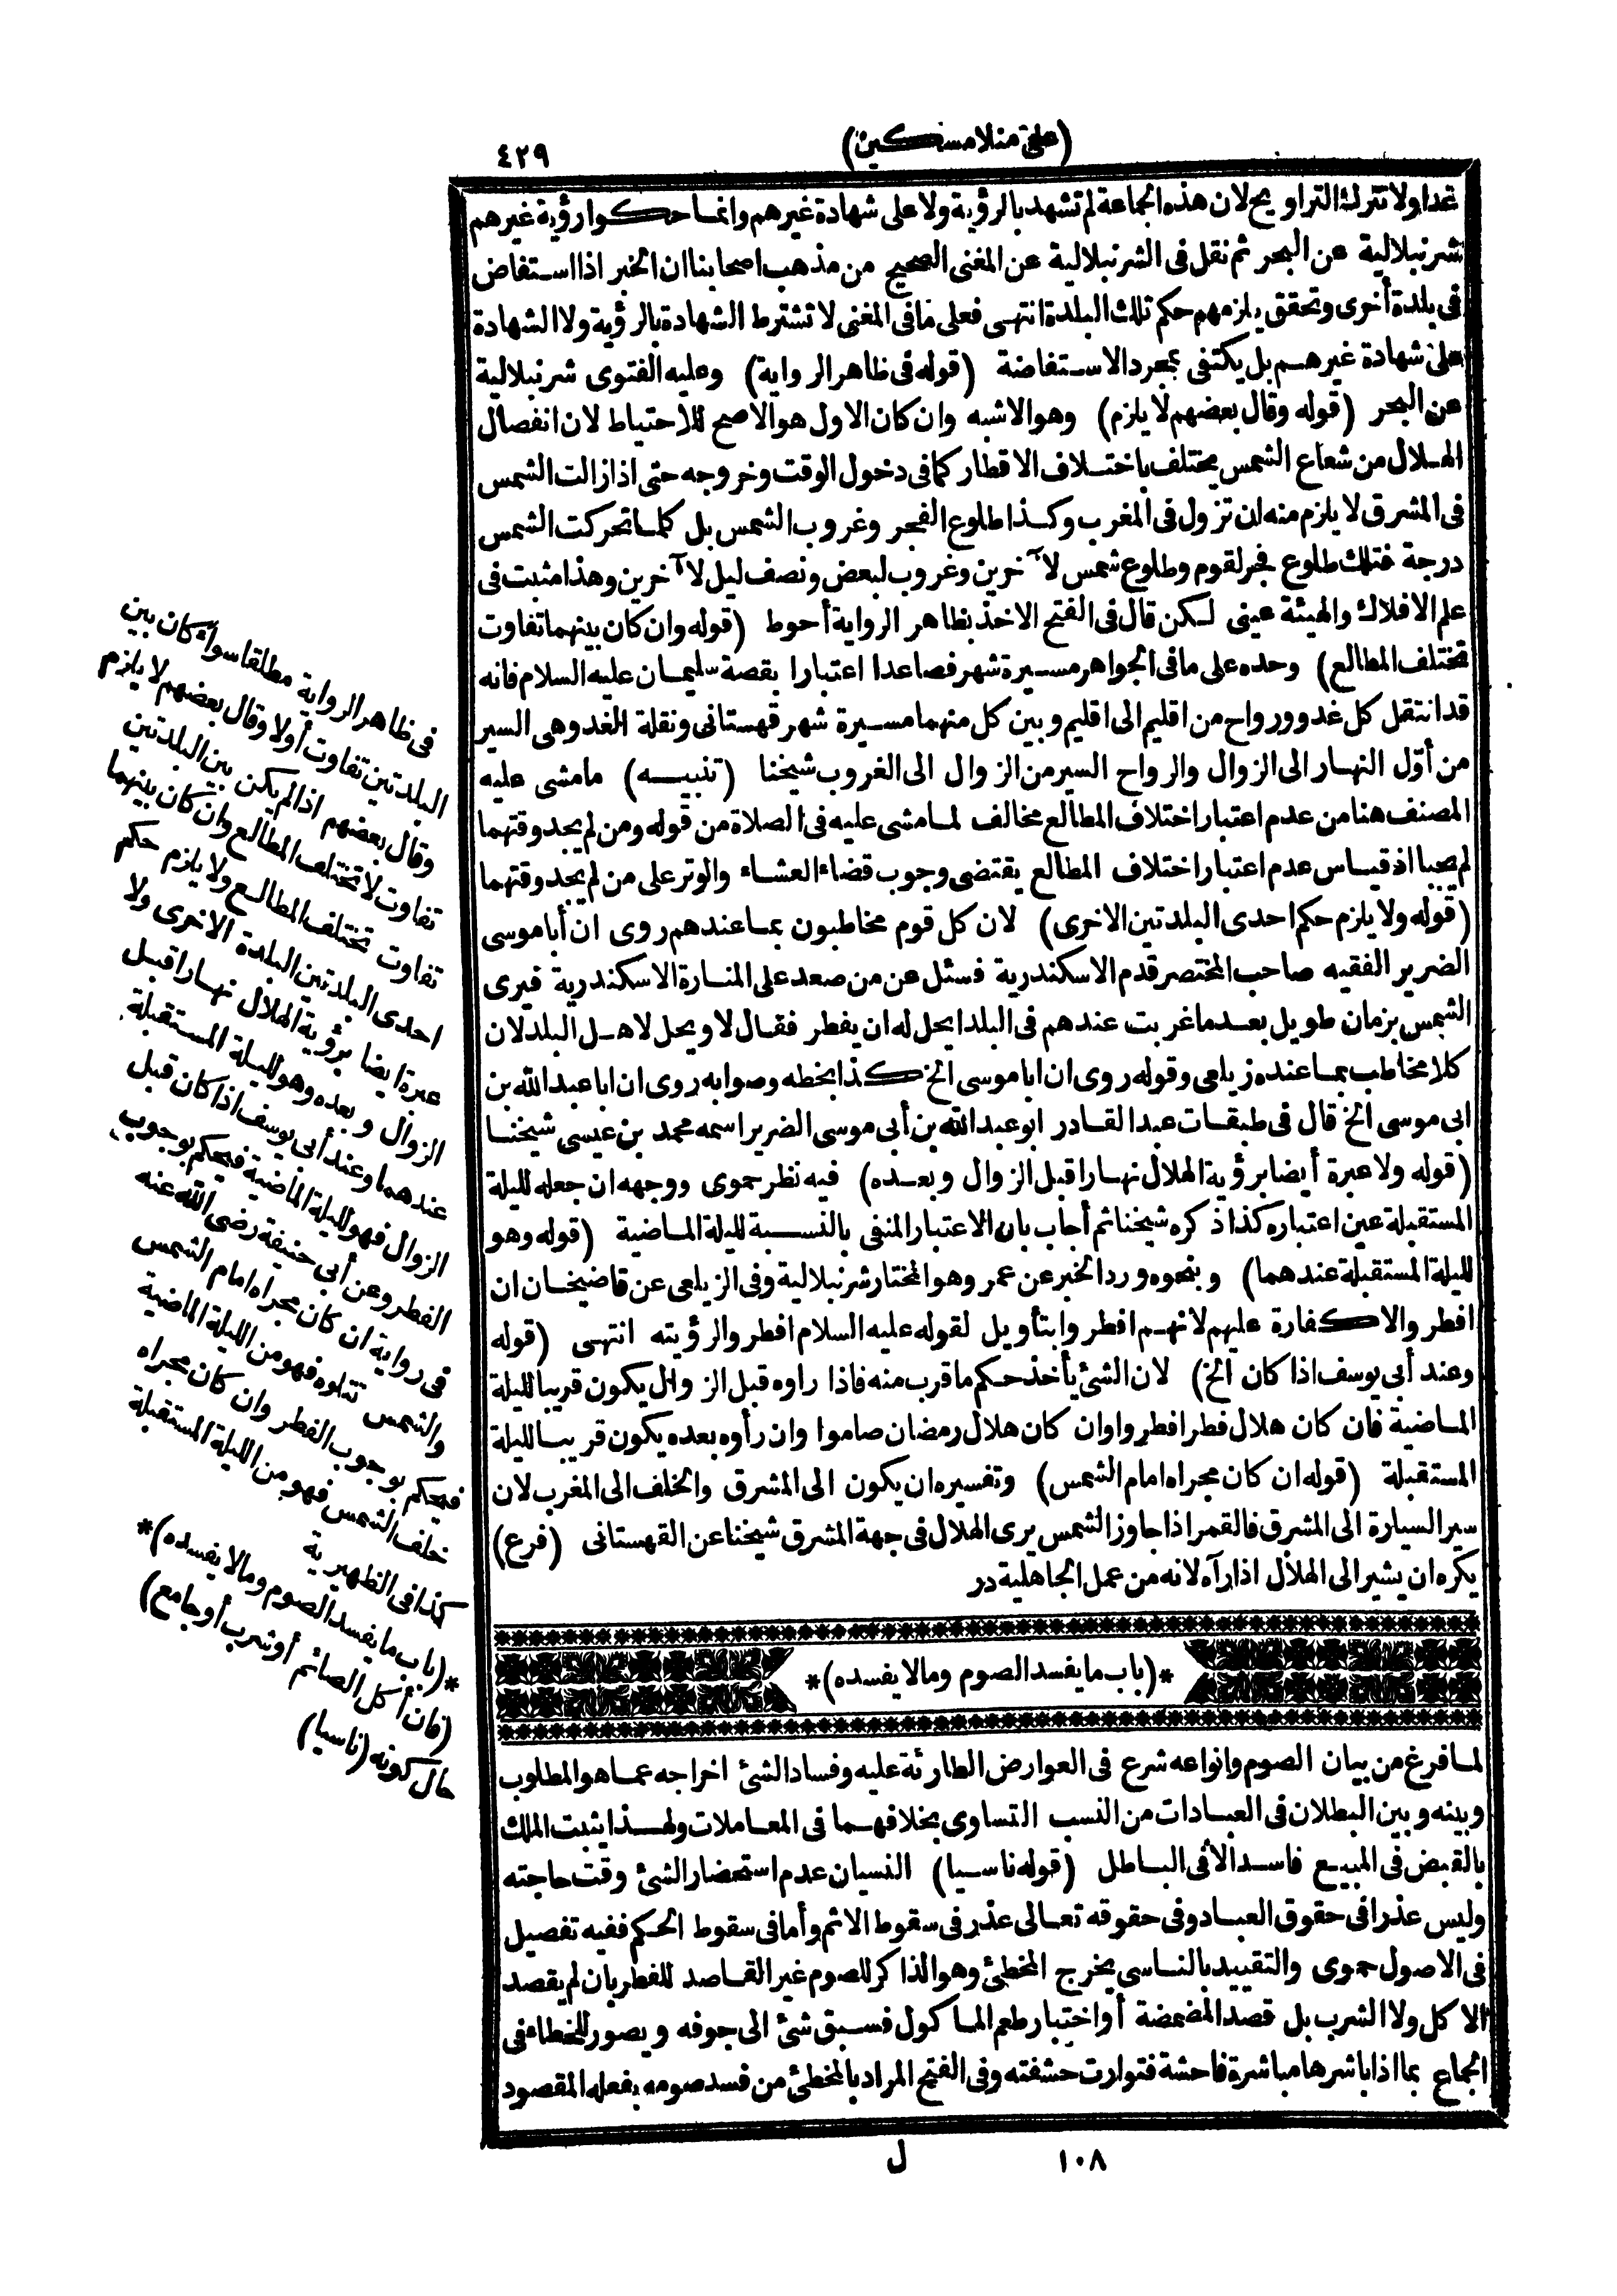 (على منلا مسكين)
٤٢٩
غدا ولا تترك التراويح لان هذه الجماعة لم تشهد بالرؤية ولا على شهادة غيرهم وانما حكوا رؤية غيرهم
شرنبلالية عن البحر ثم نقل فى الشرنبلالية عن المغنى الصحيح من مذهب اصحابنا ان الخبر اذا استفاض
فى بلدة أخرى وتحقق يلزمهم حكم تلك البلدة انتهى فعلى ما فى المغنى لا تشترط الشهادة بالرؤية ولا الشهادة
على شهادة غيرهم بل يكتفى بمجرد الاستفاضة (قوله فى ظاهر الرواية) وعليه الفتوى شرنبلالية
عن البحر (قوله وقال بعضهم لا يلزم) وهو الاشبه وان كان الاول هو الاصح للاحتياط لان انفصال
الهلال من شعاع الشمس يختلف باختلاف الاقطار كما فى دخول الوقت وخروجه حتى اذا زالت الشمس
فى المشرق لا يلزم منه ان تزول فى المغرب وكذا طلوع الفجر وغروب الشمس بل كلما تحركت الشمس
درجة فتلك طلوع فجر لقوم وطلوع شمس لآخرين وغروب لبعض ونصف ليل لآخرين وهذا مثبت فى
علم الافلاك والهيئة عينى لكن قال فى الفتح الاخذ بظاهر الرواية أحوط (قوله وان كان بينهما تفاوت
تختلف المطالع) وحده على ما فى الجواهر مسيرة شهر فصاعدا اعتبارا بقصة سليمان عليه السلام فانه
قد انتقل كل غدو ورواح من اقليم الى اقليم وبين كل منهما مسيرة شهر قهستانى ونقلة الغد وهى السير
من أوّل النهار الى الزوال والرواح السير من الزوال الى الغروب شيخنا (تنبيه) ما مشى عليه
المصنف هنا من عدم اعتبار اختلاف المطالع مخالف لما مشى عليه فى الصلاة من قوله ومن لم يجد وقتهما
لم يجبا اذ قياس عدم اعتبار اختلاف المطالع يقتضى وجوب قضاء العشاء والوتر على من لم يجد وقتهما
(قوله ولا يلزم حكم احدى البلدتين الاخرى) لان كل قوم مخاطبون بما عندهم روى ان أبا موسى
الضرير الفقيه صاحب المختصر قدم الاسكندرية فسئل عن من صعد على المنارة الاسكندرية فيرى
الشمس بزمان طويل بعد ما غربت عندهم فى البلد ايحل له ان يفطر فقال لا ويحل لاهل البلد لان
كلا مخاطب بما عنده زيلعى وقوله روى ان ابا موسى الخ كذا بخطه وصوابه روى ان ابا عبد الله بن
ابى موسى الخ قال فى طبقات عبد القادر ابو عبد الله بن أبى موسى الضرير اسمه محمد بن عيسى شيخنا
(قوله ولا عبرة أيضا برؤية الهلال نهارا قبل الزوال وبعده) فيه نظر حموى ووجهه ان جعله لليلة
المستقبلة عين اعتباره كذا ذكره شيخنا ثم أجاب بان الاعتبار المنفى بالنسبة لليلة الماضية (قوله وهو
لليلة المستقبلة عندهما) وبنحوه ورد الخبر عن عمر وهو المختار شرنبلالية وفى الزيلعى عن قاضيخان ان
افطروا لا كفارة عليهم لانهم افطروا بتأويل لقوله عليه السلام افطروا لرؤيته انتهى (قوله
وعند أبى يوسف اذا كان الخ) لان الشئ يأخذ حكم ما قرب منه فاذا راوه قبل الزوال يكون قريبا لليلة
الماضية فان كان هلال فطر افطروا وان كان هلال رمضان صاموا وان رأوه بعده يكون قريبا لليلة
المستقبلة (قوله ان كان مجراه امام الشمس) وتفسيره ان يكون الى المشرق والخلف الى المغرب لان
سير السيارة الى المشرق فالقمر اذا جاوز الشمس يرى الهلال فى جهة المشرق شيخنا عن القهستانى (فرع)
يكره ان يشير الى الهلال اذا رآه لانه من عمل الجاهلية در
*(باب ما يفسد الصوم وما لا يفسده)*
لما فرغ من بيان الصوم وانواعه شرع فى العوارض الطارئة عليه وفساد الشئ اخراجه عما هو المطلوب
وبينه وبين البطلان فى العبادات من النسب التساوى بخلافهما فى المعاملات ولهذا يثبت الملك
بالقبض فى المبيع فاسدا لا فى الباطل (قوله ناسيا) النسيان عدم استحضار الشئ وقت حاجته
وليس عذرا فى حقوق العباد وفى حقوقه تعالى عذر فى سقوط الاثم وأما فى سقوط الحكم ففيه تفصيل
فى الاصول حموى والتقييد بالناسى يخرج المخطئ وهو الذاكر للصوم غير القاصد للفطر بان لم يقصد
الاكل ولا الشرب بل قصد المضمضة أو اختبار طعم المأكول فسبق شئ الى جوفه ويصور للخطاء فى
الجماع بما اذا باشرها مباشرة فاحشة فتوارت حشفته وفى الفتح المراد بالمخطئ من فسد صومه بفعله المقصود
فى ظاهر الرواية مطلقا سواء كان بين
البلدتين تفاوت أولا وقال بعضهم لا يلزم
وقال بعضهم اذا لم يكن بين البلدتين
تفاوت لا تختلف المطالع وان كان بينهما
تفاوت تختلف المطالع ولا يلزم حكم
احدى البلدتين البلدة الاخرى ولا
عبرة ايضا برؤية الهلال نهارا قبل
الزوال وبعده وهو لليلة المستقبلة
عندهما وعند أبى يوسف اذا كان قبل
الزوال فهو لليلة الماضية فيحكم بوجوب
الفطر وعن أبى حنيفة رضى الله عنه
فى رواية ان كان مجراه امام الشمس
والشمس تتلوه فهو من الليلة الماضية
فيحكم بوجوب الفطر وان كان مجراه
خلف الشمس فهو من الليلة المستقبلة
كذا فى الظهيرية
*(باب ما يفسد الصوم وما لا يفسده)*
(فان أكل الصائم أو شرب أو جامع)
حال كونه (ناسيا)
١٠٨
ل